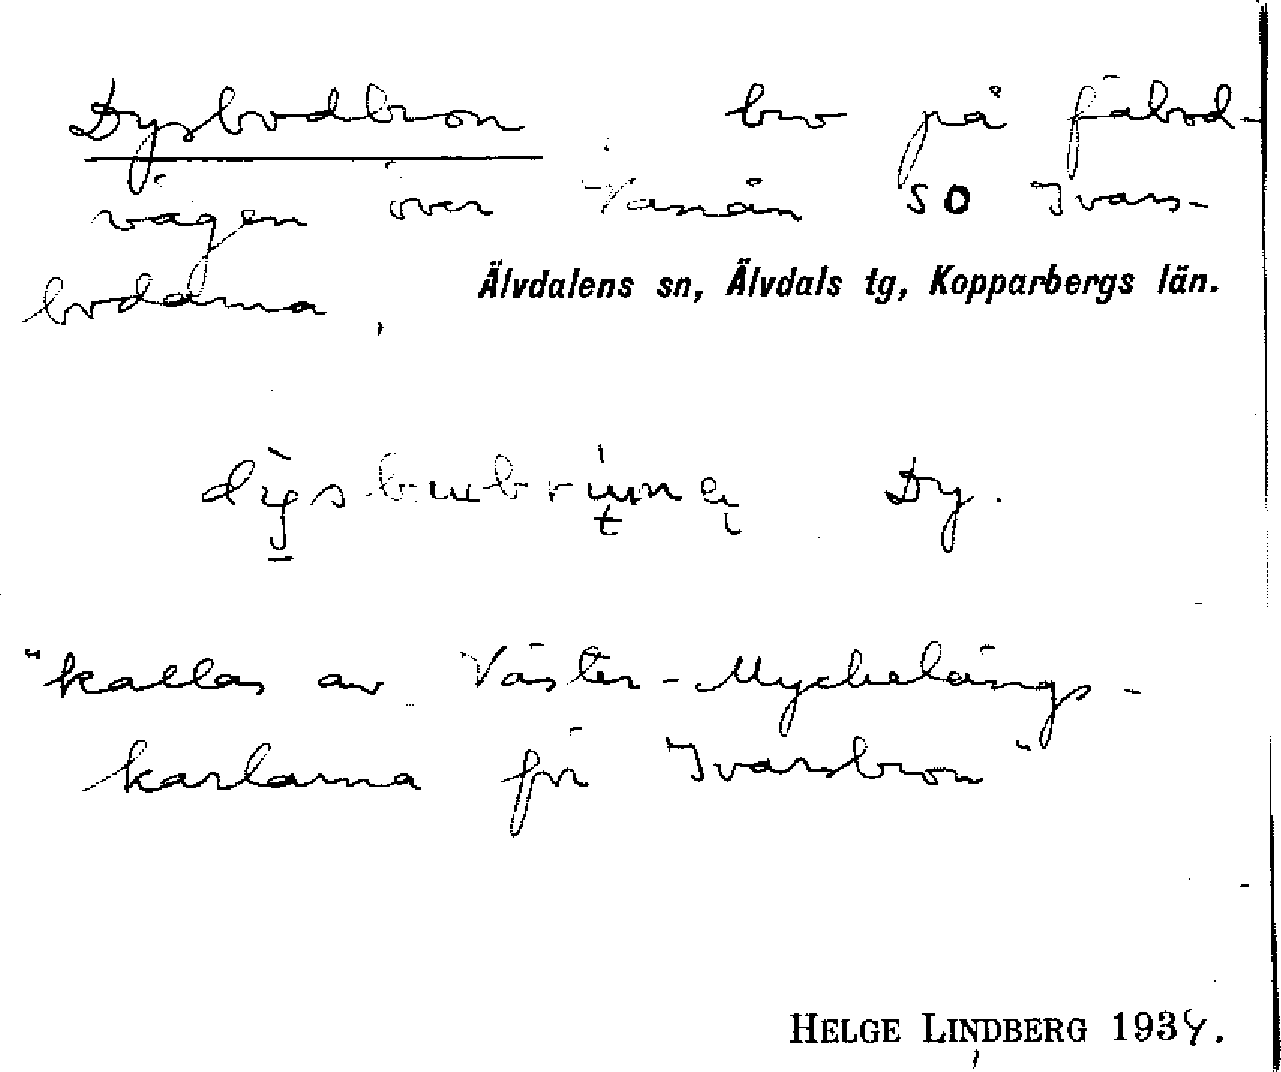 Dysbodbron bro på fäbod-
vägen över Vanån SO Ivars-
bodarna,
Älvdalens sn, Älvdals tg, Kopparbergs län.
Dy.
"kallas av Väster-Myckelängs-
karlarna för Ivarsbron"
HELGE LINDBERG 1934.